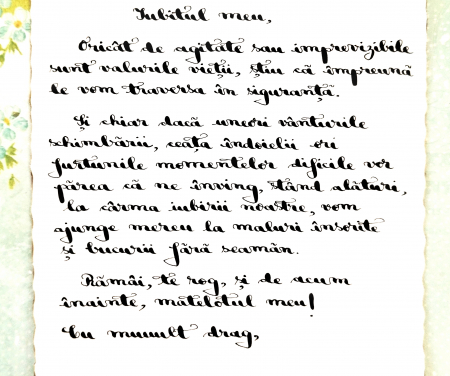 Iubitul meu,
Oricât de agitate sau imprevizibile
sunt valurile vieții, știu că împreună
le vom traversa în siguranță.
Și chiar dacă uneori vânturile
schimbării, ceața îndoielii ori
furtunile momentelor dificile vor
părea că ne înving, stând alături,
la cârma iubirii noastre, vom
ajunge mereu la maluri însorite
și bucurii fără seamăn.
Rămâi, te rog, și de acum
înainte, matelotul meu!
Cu muuult drag,